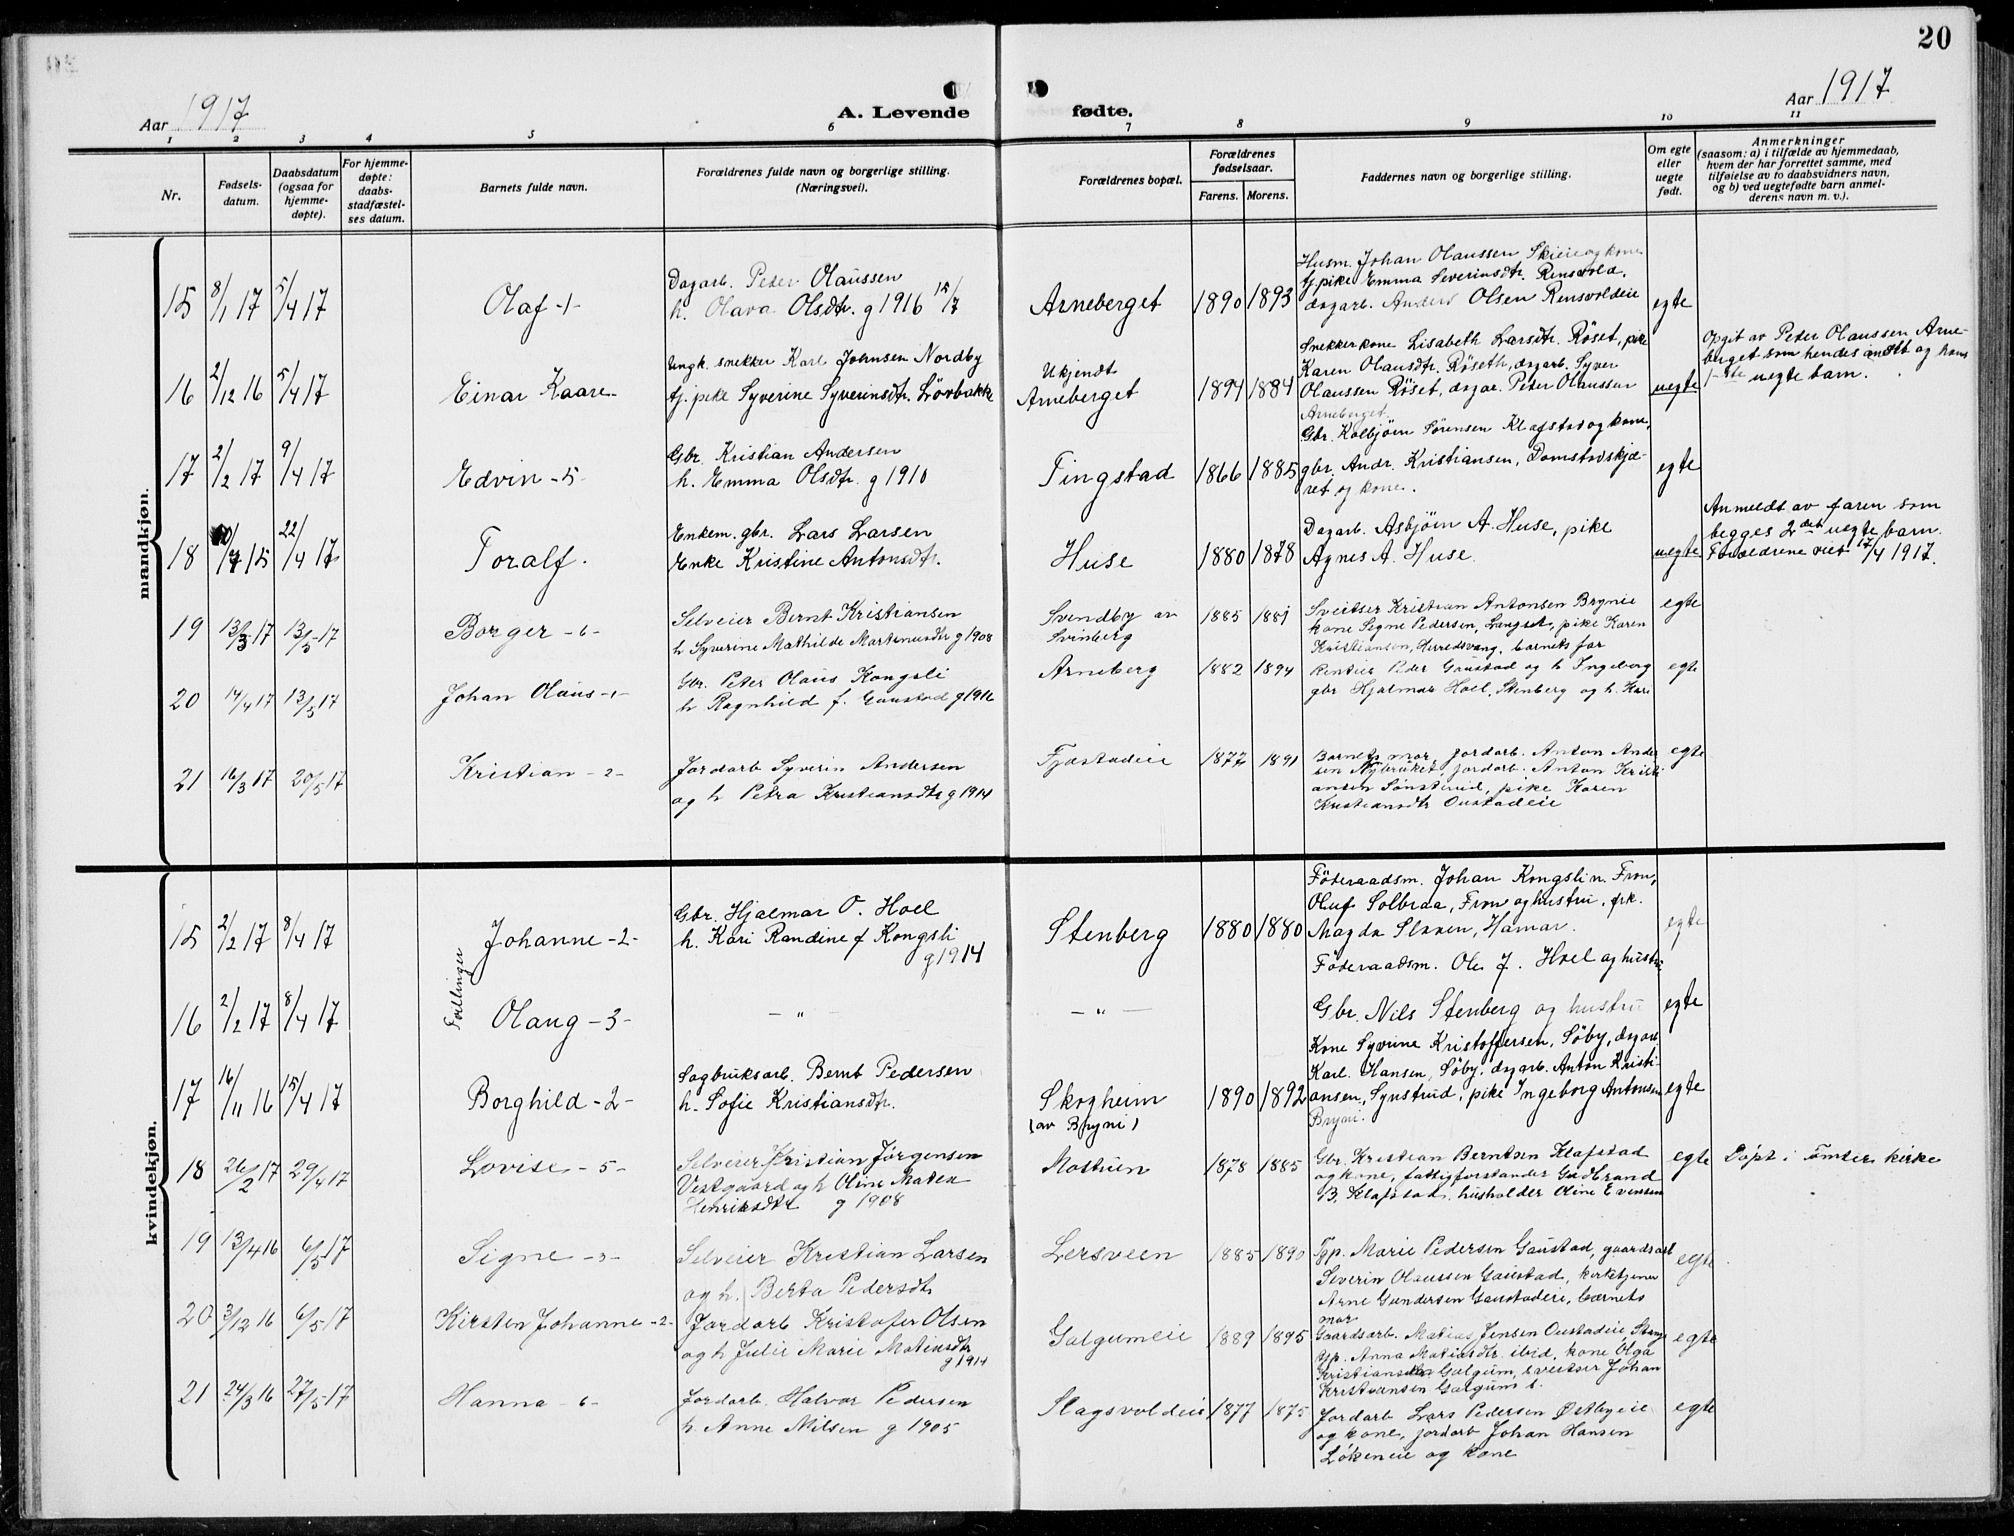 20
Aar 1917
A. Levende
fødte.
Aar 1917
1 2 3 4 5 6 7 8 9 10 11
Nr.
Fødsels-
datum.
Daabsdatum
(ogsaa for
hjemme-
døpte).
For hjemme-
døpte:
daabs-
stadfæstel-
ses datum.
Barnets fulde navn.
Forældrenes fulde navn og borgerlige stilling.
(Næringsvei).
Forældrenes bopæl.
Forældrenes
fødselsaar.
Farens. Morens.
Faddernes navn og borgerlige stilling.
Om egte
eller
uegte
født.
Anmerkninger
(saasom: a) i tilfælde av hjemmedaab,
hvem der har forrettet samme, med
tilføielse av to daabsvidners navn,
og b) ved uegtefødte barn anmel-
derens navn m. v.).
mandkjøn.
15 8/1 17 5/4 17 Olaf -1-
Dagarb. Peter Olaussen
h. Olava Olsdtr. g 1916 15/7
Arneberget 1890 1893
Husm. Johan Olaussen Skieie og kone
tj. pike Emma Severinsdtr. Rensvold,
dagarb. Anders Olsen Rensvoldeie
egte
16 2/12 16 5/4 17 Einar Kaare
Ungk. snekker Karl Johnsen Nordby
tj. pike Syverine Syverinsdtr. Lövbakke
Ukjendt
Arneberget 1894 1884
Snekkerkone Lisabeth Larsdtr. Røset, pike
Karen Olausdtr. Røseth, dagarb. Syver
Olaussen Røset, dagar. Peter Olaussen
Arneberget.
uegte
Opgit av Peter Olaussen Arne-
berget som hendes andet og hans
1-ste uegte barn.
17 2/2 17 9/4 17 Edvin -5-
Gbr. Kristian Andersen
h. Emma Olsdtr. g 1910
Tingstad 1866 1885
Gbr. Kolbjörn Sörensen Klafstad og kone,
gbr. Andr. Kristiansen, Domstadskjæ-
ret og kone.
egte
18 15 22/4 17 Toralf.
Enkem. gbr. Lars Larsen
Enke Kristine Antonsdtr.
Huse 1880 1878
Dagarb. Asbjörn A. Huse, pike
Agnes A. Huse.
uegte
Anmeldt av faren som
begges 2det uegte barn.
Forældrene viet 17/4 1917.
19 13/3 17 13/5 17 Borger -6-
Selveier Bernt Kristiansen
h Syverine Mathilde Martinusdtr g 1908
Svendby av
Svinberg 1885 1881
Sveitser Kristian Antonsen Brynie
kone Signe Pedersen, Langset, pike Karen
Kristiansen, Herredsvang, barnets far
egte
20 17/4 17 13/5 17 Johan Olaus -1-
Gbr. Peter Olaus Kongsli
h Ragnhild f. Gaustad g 1916
Arneberg 1882 1894
Rentier Peder Gaustad og h Ingeborg
gbr Hjalmar Hoel, Stenberg og h. Kari
egte
21 16/3 17 20/5 17 Kristian -2-
Jordarb Syverin Andersen
og h Petra Kristiansdtr g 1914
Fjøstadeie 1877 1891
Barnets mor, jordarb. Anton Ander
sen Nybruket, jordarb. Anton Kristi
ansen Sönsterud, pike Karen
Kristiansdtr Oustadeie
egte
kvindekjøn.
15 2/2 17 8/4 17 Johanne -2-
Tvillinger
Gbr. Hjalmar O. Hoel
h. Kari Randine f Kongsli
g 1914
Stenberg 1880 1880
Föderaadsm. Johan Kongsli n. Fron,
Oluf Solbraa, Fron og hustru, frk.
Magda Slaaen, Hamar.
Föderaadsm. Ole J. Hoel og hustru
egte
16 2/2 17 8/4 17 Olaug -3-
- " -
- " -
Gbr. Nils Stenberg og hustru
egte
17 16/11 16 15/4 17 Borghild -2-
Sagbruksarb. Bernt Pedersen
h. Sofie Kristiansdtr.
Skogheim
(av Bryni) 1890 1892
Kone Syverine Kristoffersen, Söby, dagarb
Karl Hansen, Söby, dagarb. Anton Kristi-
ansen, Synstrud, pike Ingeborg Antonsen
Bryni.
egte
18 26/2 17 29/4 17 Lovise -5-
Selveier Kristian Jörgensen
Vestgaard og h Oline Matea
Henriksdtr g 1908
Mostuen 1878 1885
Gbr. Kristian Berntsen Klafstad
og kone, fattigforstander Gudbrand
B. Klafstad, husholder Oline Evensen
egte
Döpt i Tomter kirke
19 13/4 16 6/5 17 Signe -3-
Selveier Kristian Larsen
og h. Berta Pedersdtr
Lersveen 1885 1890
Tjp. Marie Pedersen Gaustad, gaardsarb
Severin Olaussen Gaustad, kirketjener
Arne Gundersen Gaustadeie, barnets
mor
egte
20 3/12 16 6/5 17 Kirsten Johanne -2-
Jordarb Kristofer Olsen
og h Julie Marie Matiasdtr
g 1914
Galgumeie 1889 1895
Gaardsarb. Matias Jensen Oustadeie, Stange
tjp. Anna Matiasdtr ibid, kone Olga
Kristiansen Galgum, sveitser Johan
Kristiansen Galgum
egte
21 24/3 16 27/5 17 Hanna -6-
Jordarb. Halvor Pedersen
h. Anne Nilsen g 1905
Slagsvoldeie 1877 1875
Jordarb Lars Pedersen Østbyeie
og kone, jordarb Johan Hansen
Løkeneie og kone
egte